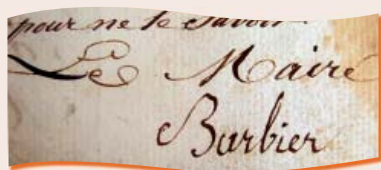 pour ne le savoir
Le Maire
Barbier